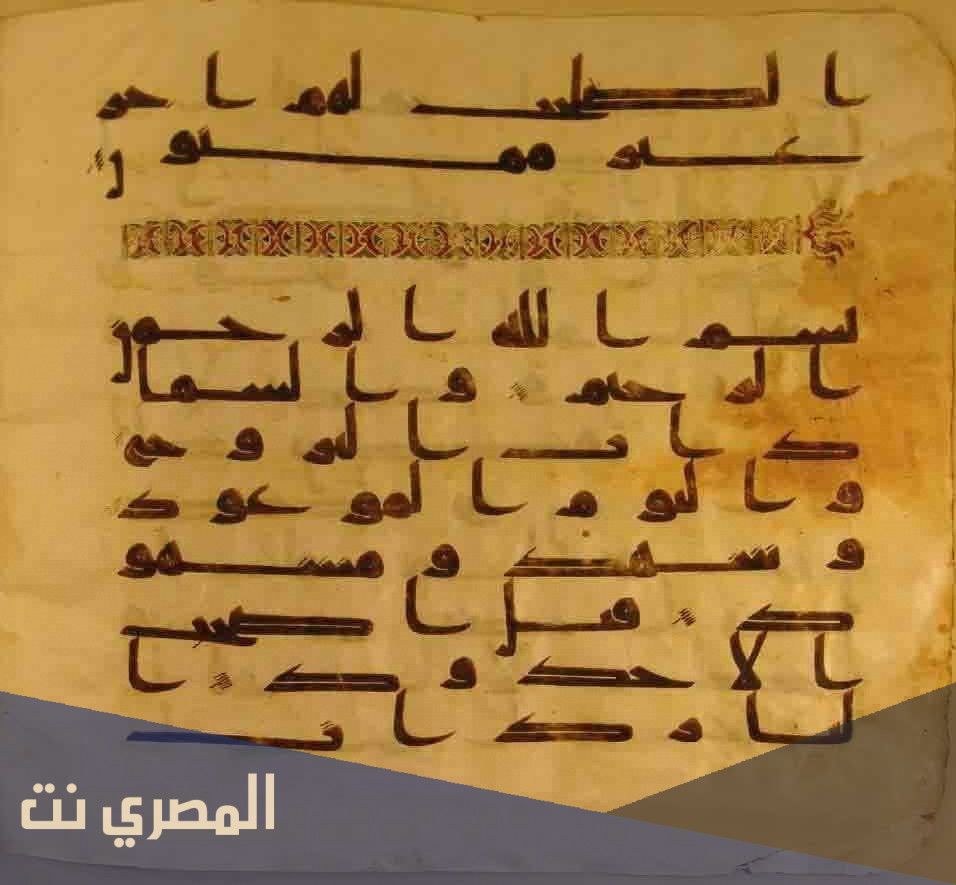 ا الصلحت لهم اجر
غير ممنون
بسم الله الرحمن
الرحيم والسما
ذات البروج
واليوم الموعود
وشهد ومشهو
د قتل اصحب
الاخدود ا
لنار ذات
المصري نت